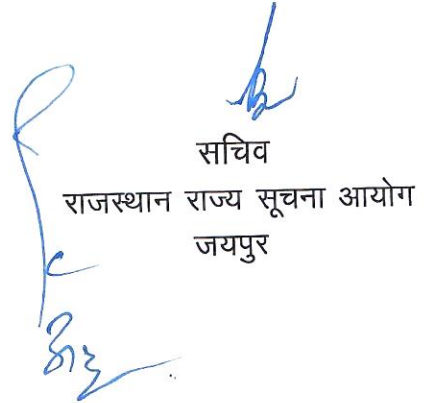 सचिव
राजस्थान राज्य सूचना आयोग
जयपुर